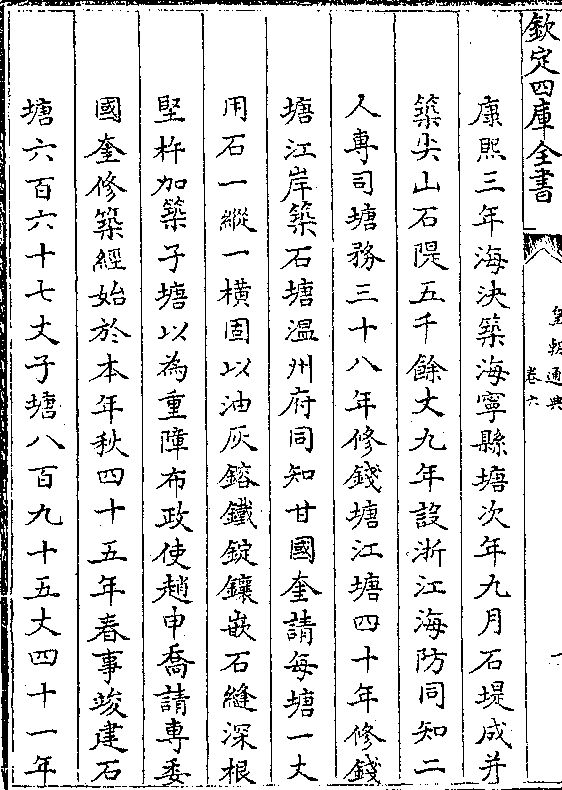 欽定四庫全書
皇朝通典
卷六
一
康熙三年海決築海寧縣塘次年九月石堤成并
築尖山石隄五千餘丈九年設浙江海防同知二
人專司塘務三十八年修錢塘江塘四十年修錢
塘江岸築石塘温州府同知甘國奎請每塘一丈
用石一縱一橫固以油灰鎔鐵錠鑲嵌石縫深根
堅杵加築子塘以為重障布政使趙申喬請專委
國奎修築經始於本年秋四十五年春事竣建石
塘六百六十七丈子塘八百九十五丈四十一年